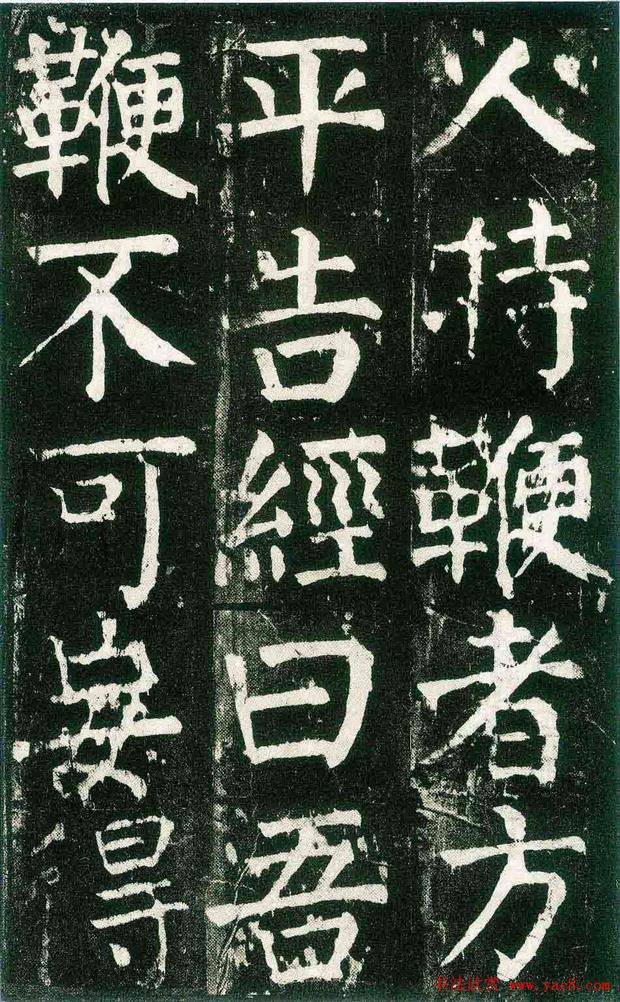 人持鞭者方
平告經曰吾
鞭不可妄得
书法欣赏 www.yac8.com